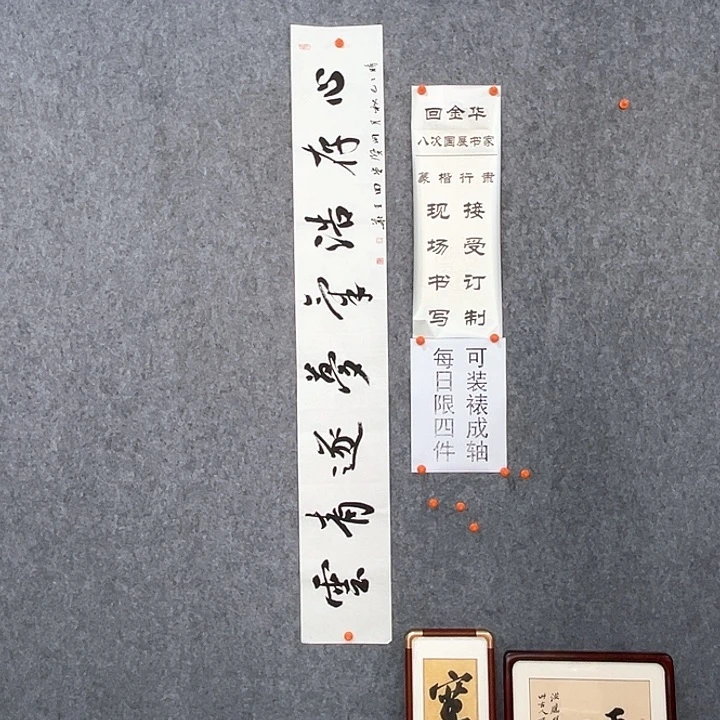 心存浩氣夢逐青雲
回金华
八次国展书家
篆楷行隶
接受订制
现场书写
可装裱成轴
每日限四件